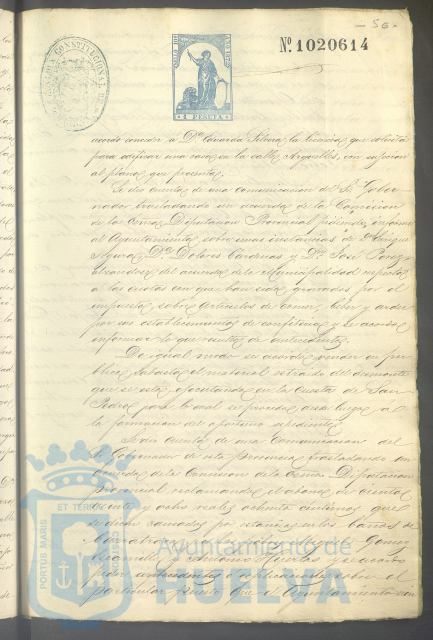 - 56 -
Nº 1020614
1 PESETA
acordó conceder á Dn. Eduardo la licencia que solicita
para edificar una casa en la calle Argüelles, con sujecion
al plano que presenta.
Se dió cuenta de una comunicacion del Sr. Gober-
nador trasladando un acuerdo de la Comision
de la Excma. Diputacion Provincial pidiendo informe
al Ayuntamiento sobre unas instancias de Dn. Enrique
Dª Dolores Cárdenas y Dn. José Perez
del acuerdo de la Municipalidad respecto
a las cuotas con que han sido gravados por el
impuesto sobre artículos de comer, beber y arder
por sus establecimientos de confiterías y se acordó
informar lo que resulte de antecedentes.
De igual modo se acordó vender en pú-
blica subasta el material retirado del
que se está ejecutando en la Cuesta de San
Pedro, para lo cual se procederá desde luego a
la formacion del oportuno expediente.
Se dió cuenta de una Comunicacion del
Sr. Gobernador de esta provincia trasladando un
acuerdo de la Comision de la Excma. Diputacion
provincial reclamando el abono de cuenta
y ocho reales ochenta centimos que
por estancias en los baños de
Gomez
y Antonio y se acordó
pedir antecedentes
particular puesto que el Ayuntamiento
PORTUS MARIS ET TERRAE CUSTODIA
Ayuntamiento de
HUELVA